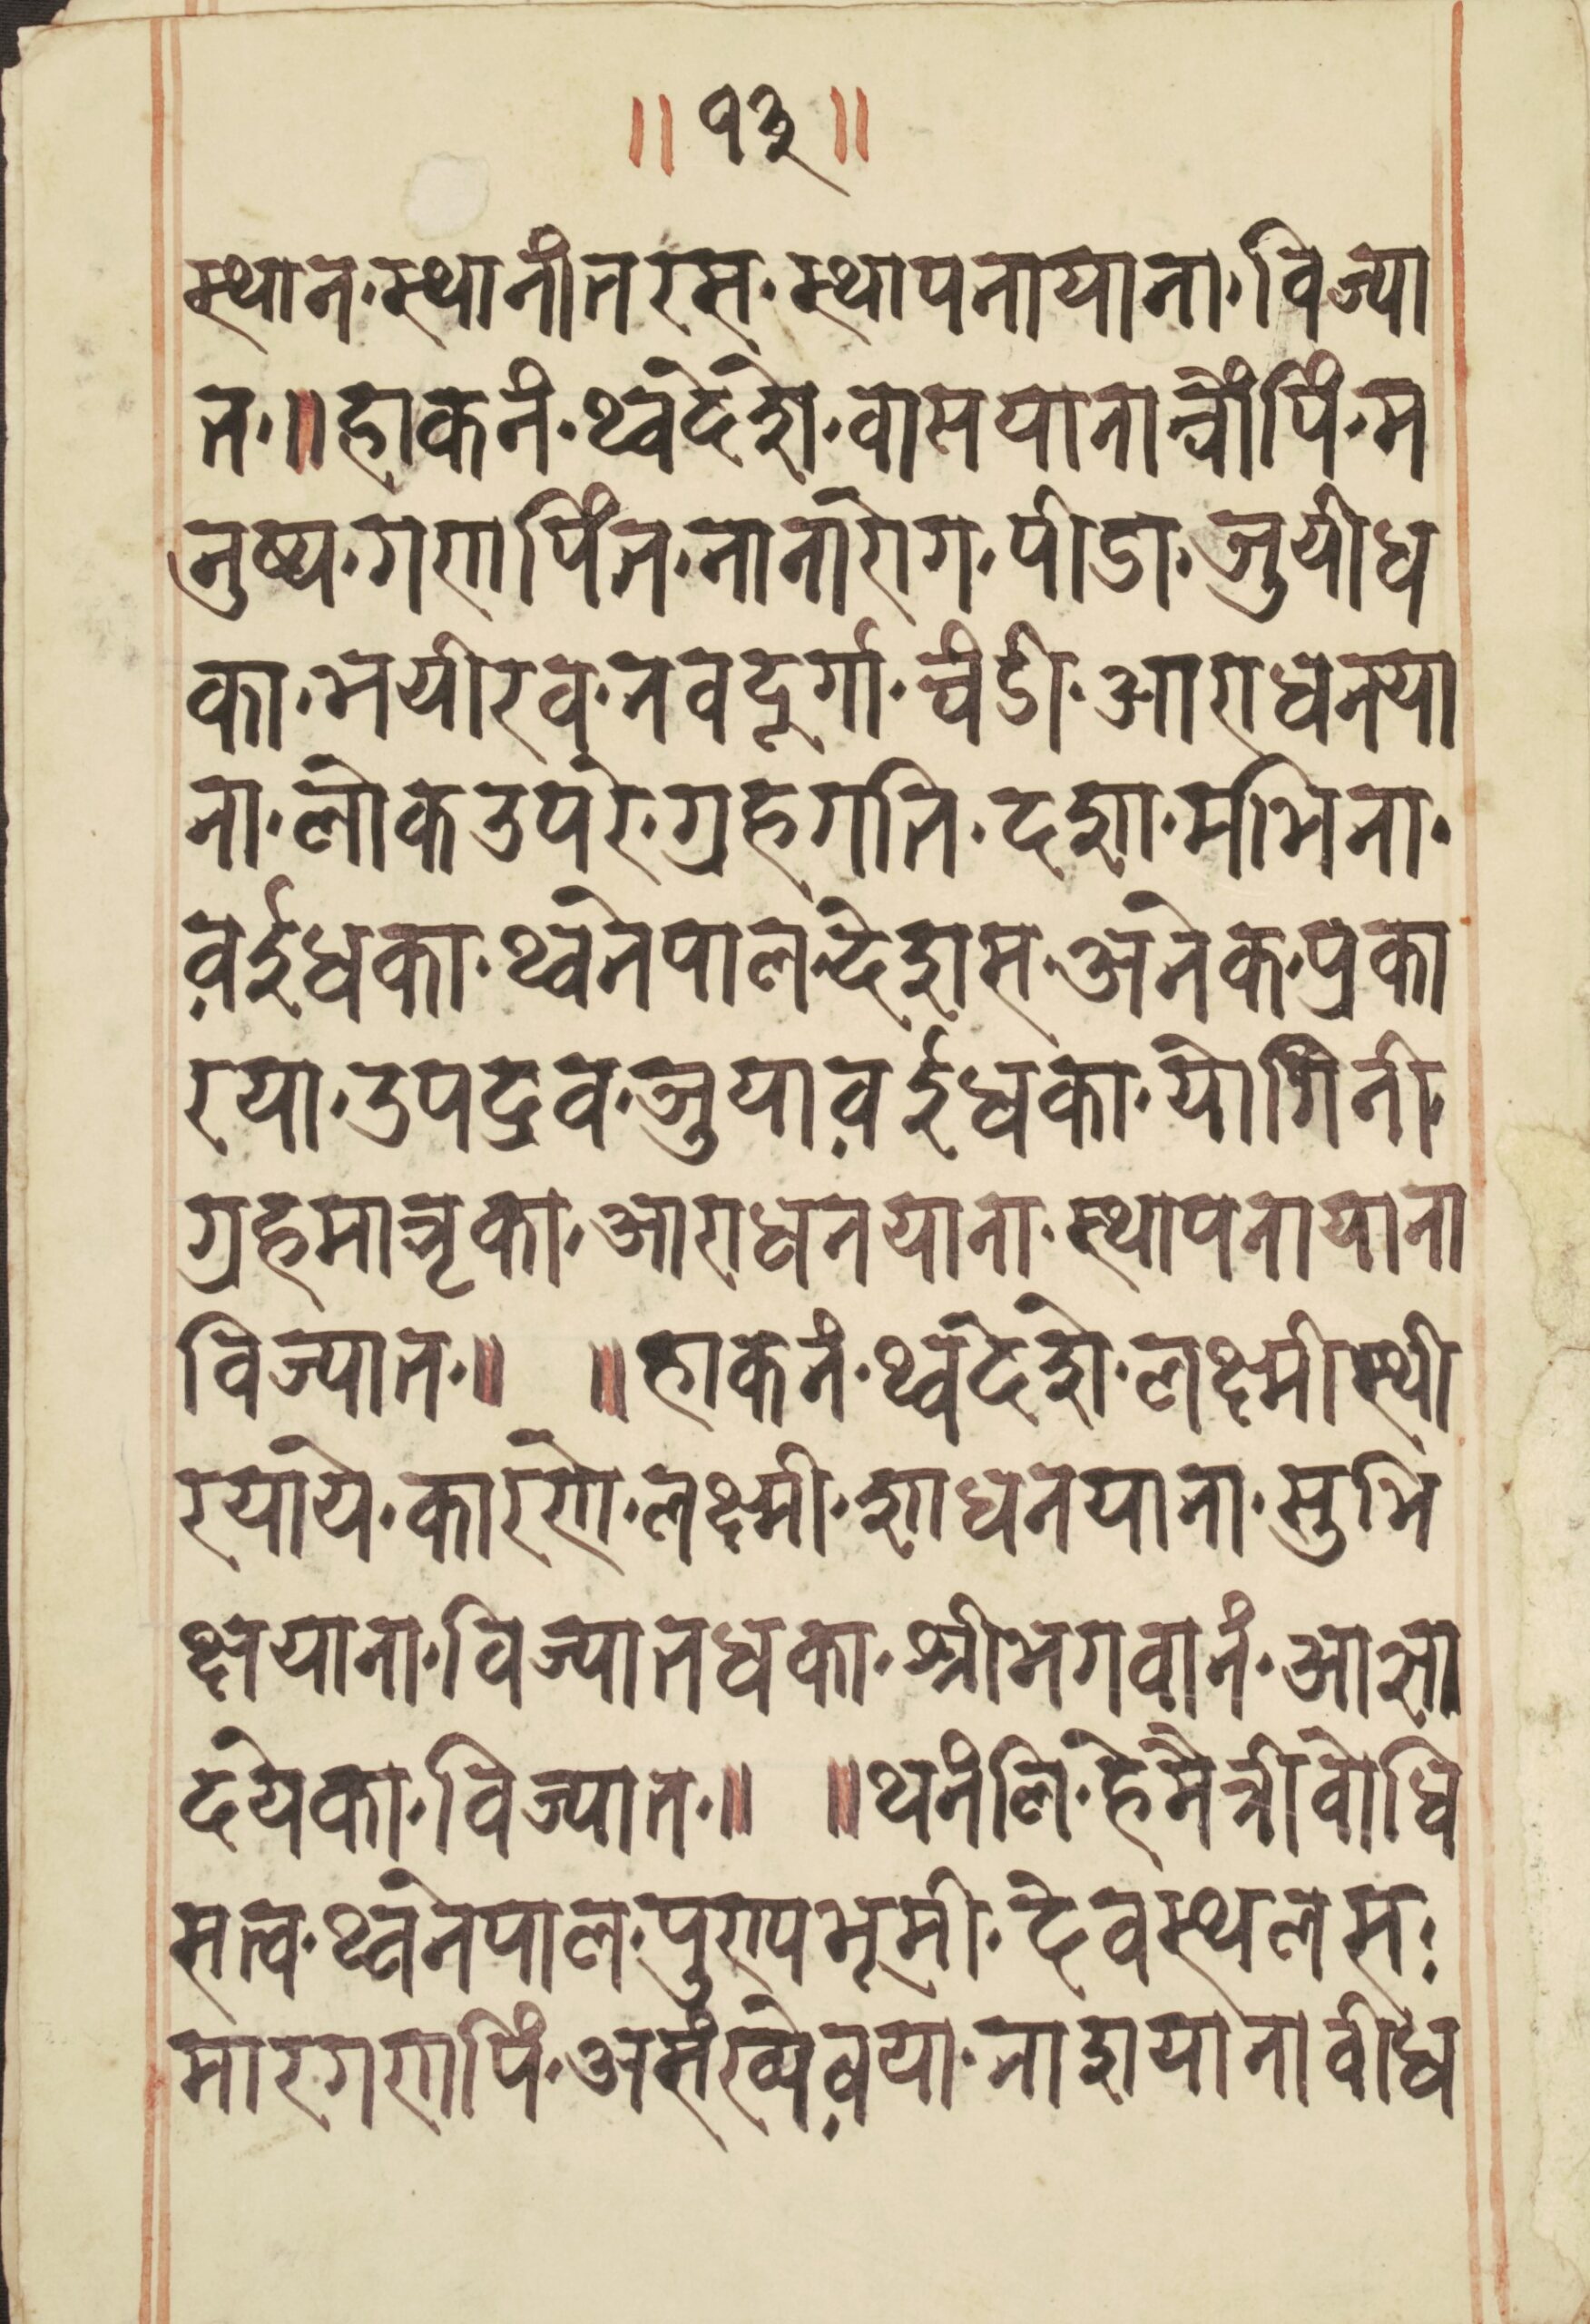 ॥१३॥
स्थान·स्थानांतरस·स्थापनायाना·विज्या
त·॥हाकनं·थ्वदेशे·वासयानाच्वंपिं·म
नुष्य·गणपिंत·नानारोग·पीडा·जुयीध
का·भयीरव·नवदूर्गा·चंडी·आराधनया
ना·लोकउपरे·ग्रहगति·दशा·मभिना·
व़ईधका·थ्वनेपाल·देशस·अनेक·प्रका
रया·उपद्रव·जुयाव़ईधका·योगिनी
ग्रहमात्रृका·आराधनयाना·स्थापनायाना
विज्यात·॥ ॥हाकनं·थ्वदेशे·लक्ष्मीस्थी
रयाये·कारणे·लक्ष्मी·शाधनयाना·सुभि
क्षयाना·विज्यातधका·श्रीभगवानं·आज्ञा
दयेका·विज्यात·॥ ॥थनंलि·हेमैत्रीवोधि
सत्व·थ्वनेपाल·पुण्यभूमी·देवस्थलस·
मारगणपिं·असंख्येव़या·नाशयानावीध